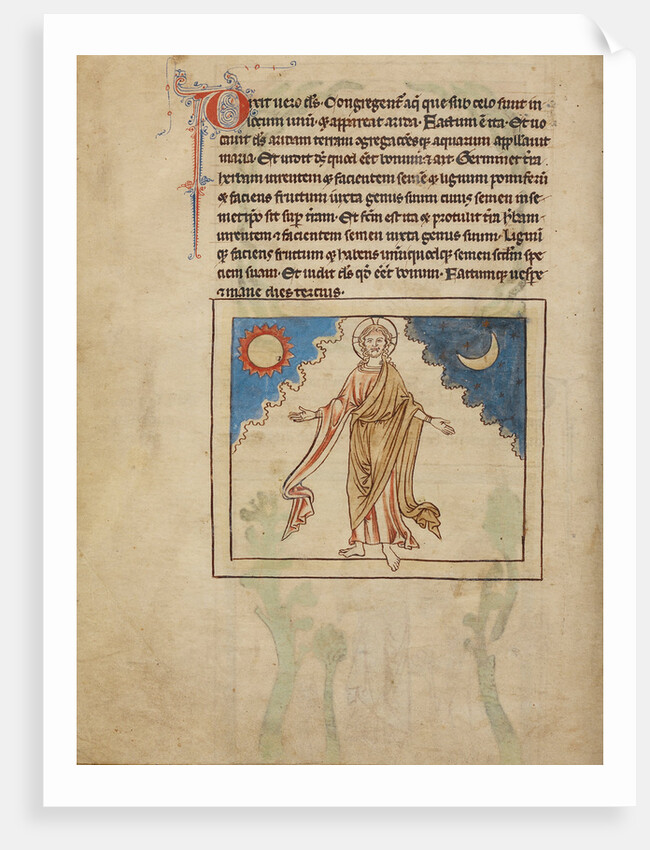 Dixit vero ds̄. Congregent᷑ aq̄ que sub celo sunt in
locum unū. ⁊ appareat arida. Factum ē ita. Et uo
cauit ds̄ aridam terram ⁊gregacōesq̨ aquarum appllauit
maria. Et uidit ds̄ quod eēt bonum ⁊ ait. Germinet tr̄a
herbam uirentem ⁊ facientem semē ⁊ lignum pomiferū
⁊ faciens fructum iuxta genus suum cuius semen in se
metipso sit sup̄ tr̄am. Et fcm̄ est ita ⁊ protulit tr̄a hˀbam
uirentem ⁊ facientem semen iuxta genus suum. Lignūq̨
faciens fructum ⁊ habens unūquodq̨ semen scdm̄ spe
ciem suam. Et uidit ds̄ qđ eēt bonum. Factumq̨ uespe
⁊ mane dies tercius.